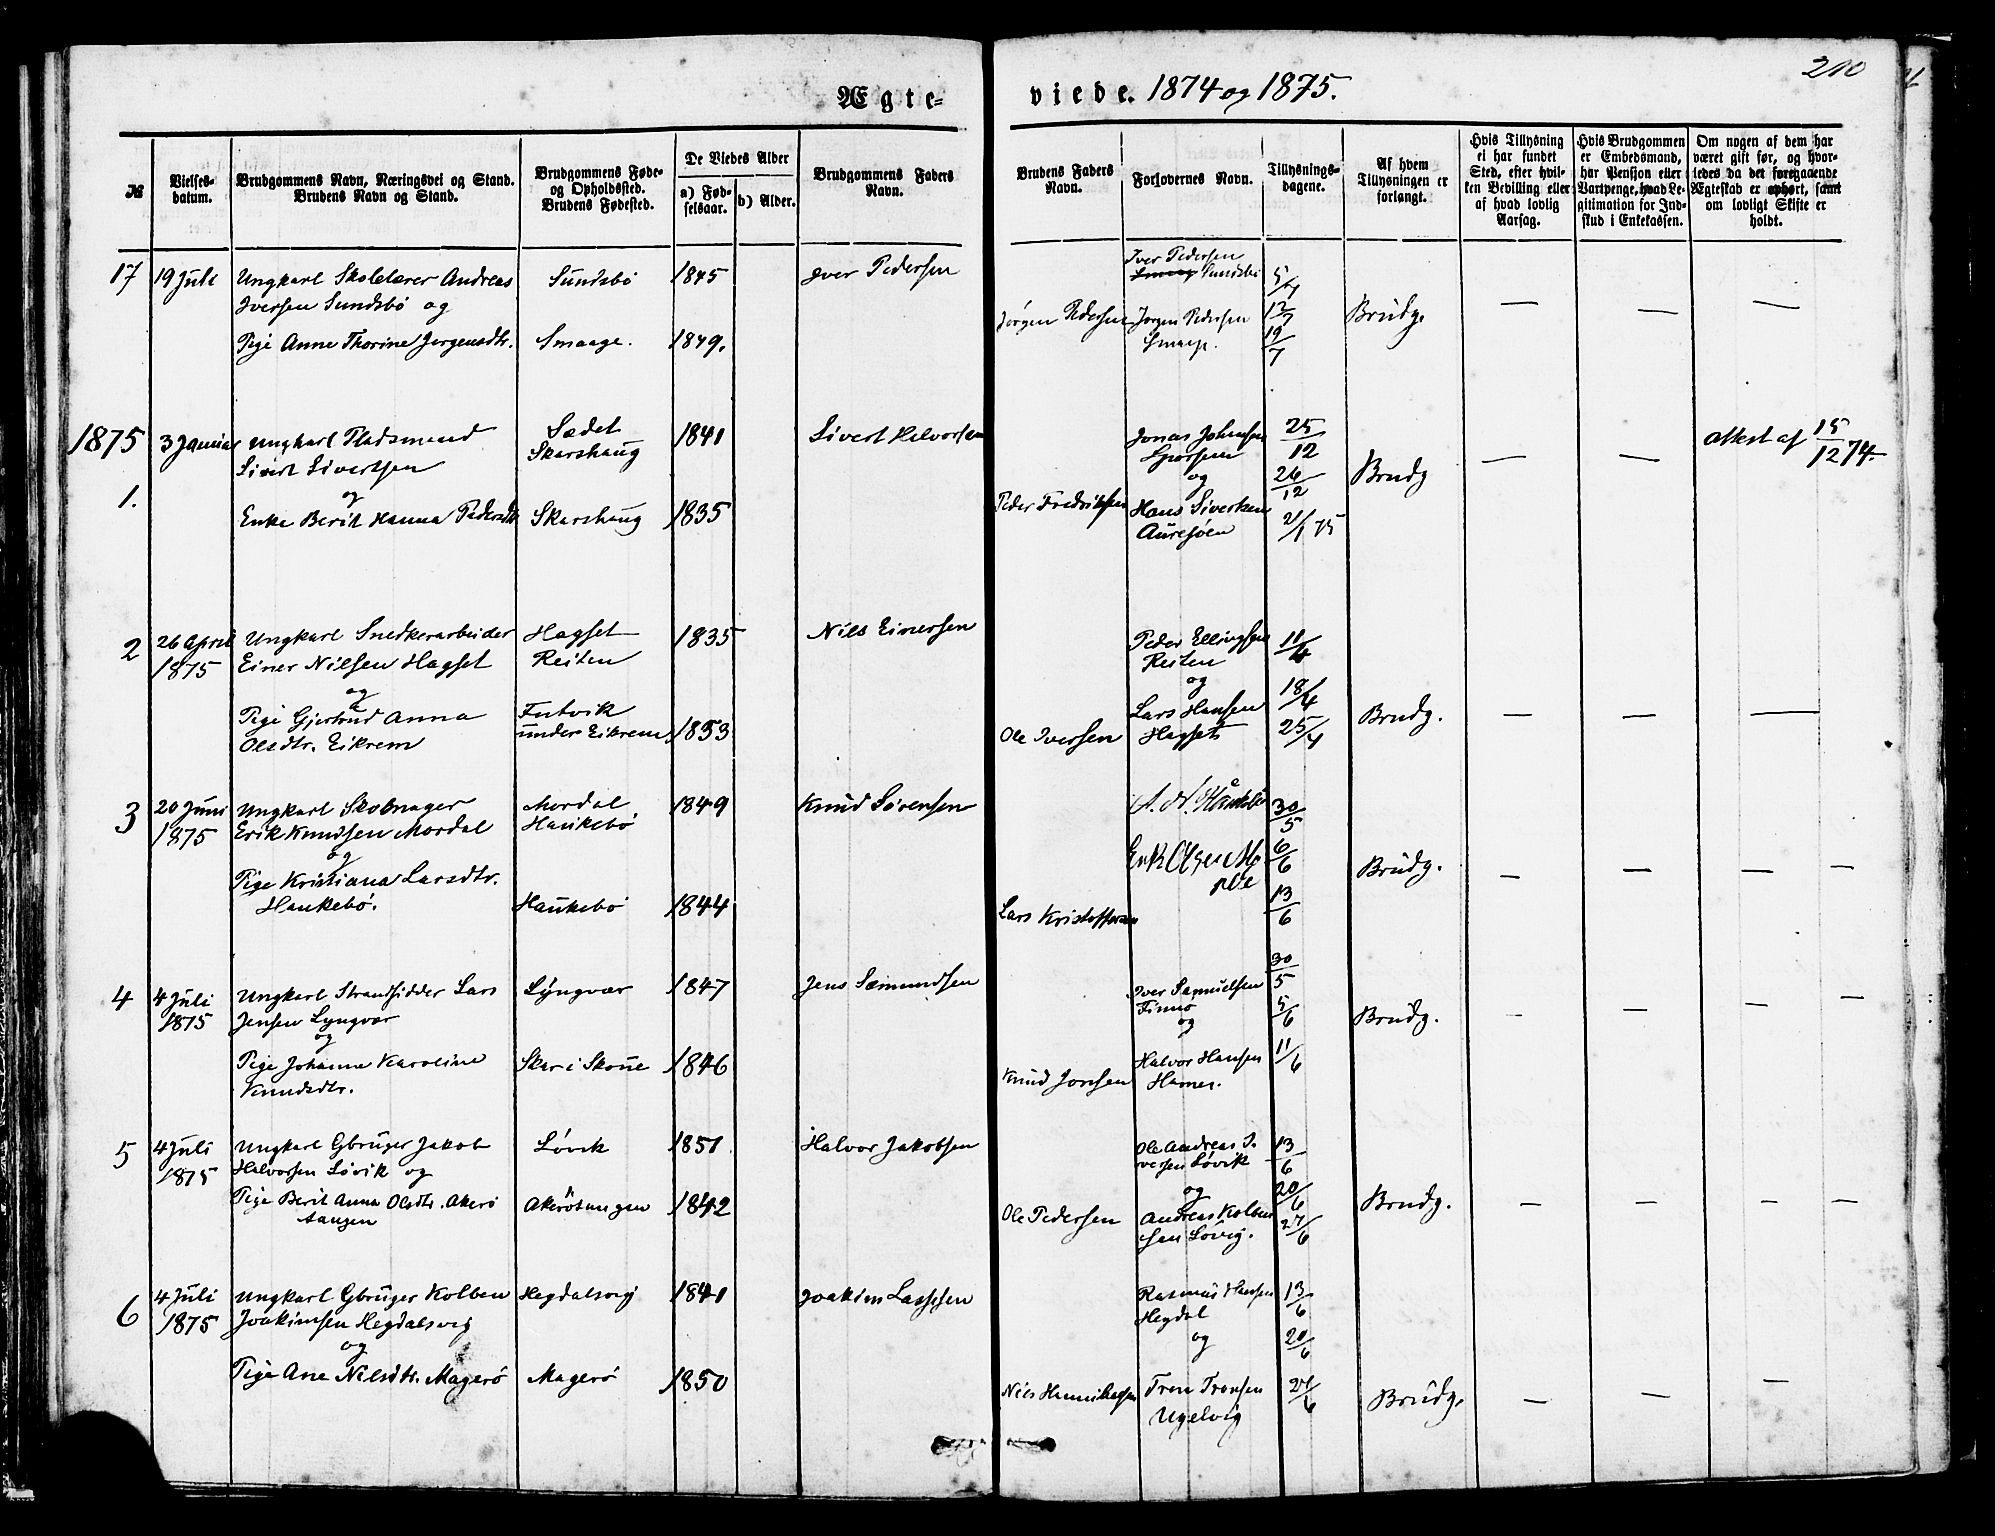 210
Ægte-
viede. 1874 og 1875.
№
Vielses-
datum.
Brudgommens Navn, Næringsvei og Stand.
Brudens Navn og Stand.
Brudgommens Føde-
og Opholdssted.
Brudens Fødested.
De Viedes Alder
a) Fød-
selsaar.
b) Alder.
Brudgommens Faders
Navn.
Brudens Faders
Navn.
Forlovernes Navn.
Tillysnings-
dagene.
Af hvem
Tillysningen er
forlangt.
Hvis Tillysning
ei har fundet
Sted, efter hvil-
ken Bevilling eller
af hvad lovlig
Aarsag.
Hvis Brudgommen
er Embedsmand,
har Pension eller
Vartpenge, hvad Le-
gitimation for Ind-
skud i Enkekassen.
Om nogen af dem har
været gift før, og hvor-
ledes da det foregaaende
Ægteskab er ophørt, samt
om lovligt Skifte er
holdt.
17 19 Juli Ungkarl Skolelærer Andreas Sundsbö 1845 Iver Pedersen Iver Pedersen
Iversen Sundsbö og Sundsbö 5/7
Jørgen Pedersen Jørgen Pedersen 12/7 Brudg. — — —
Pige Anne Thorine Jørgensdtr. Smaage. 1849. 19/7
1875 3 Januar Ungkarl Pladsmand Sædet 1841 Sivert Halvorsen Jonas Johansen 25/12 Attest af 15/12 74.
Sivert Sivertsen Skarshaug
og og 26/12 Brudg — —
1. Enke Berit Hanna Pedersdtr Skarshaug 1835 Peder Fredriksen Hans Sivertsen 2/1 75
Auresöen
2 26 April Ungkarl Snedkerarbeider Hagset 1835 Nils Einersen Peder Ellingsen 11/4
1875 Einer Nilsen Hagset Reiten Reiten
og og 18/4
Pige Gjertrud Anna Futvik Lars Hansen Brudg. — — —
Olsdtr. Eikrem under Eikrem 1853 Ole Iversen Hagset 25/4
3 20 Juni Ungkarl Skomager Mordal 1849 Knud Sörensen 30/5
1875 Erik Knudsen Mordal Haukebö
og Erik Olsen 6/6 Brudg. — — — —
Pige Kristiana Larsdtr.
Haukebö. Haukebö 1844 Lars Kristoffersen 13/6
4 4 Juli Ungkarl Strandsidder Lars Lyngvær 1847 Jens Sæmundsen Iver Samuelsen 30/5
1875 Jensen Lyngvær Finnö 5/6 Brudg. - — — —
og og
Pige Johanna Karoline Skar i Skoue 1846 Knud Jonsen Halvor Hansen 11/6
Knudsdtr. Hamer.
5 4 Juli Ungkarl Gbruger Jakob Lövik 1851 Halvor Jakobsen Ole Andreas I- 13/6
1875 Halvorsen Lövik og versen Lövik
og 20/6
Pige Berit Anna Olsdtr. Akerö Akerötangen 1842 Ole Pedersen Andreas Kolben- 27/6 Brudg. — — — —
tangen sen Lövig.
6 4 Juli Ungkarl Gbruger Kolben Hegdalsvig 1841 Joakim Lassesen Rasmus Hansen 13/6
1875 Joakimsen Hegdalsvig Hegdal
og og 20/6
Pige Ane Nilsdtr. Magerö Magerö 1850 Nils Tron Tronsen 27/6 Brudg. — — —
Ugelvig